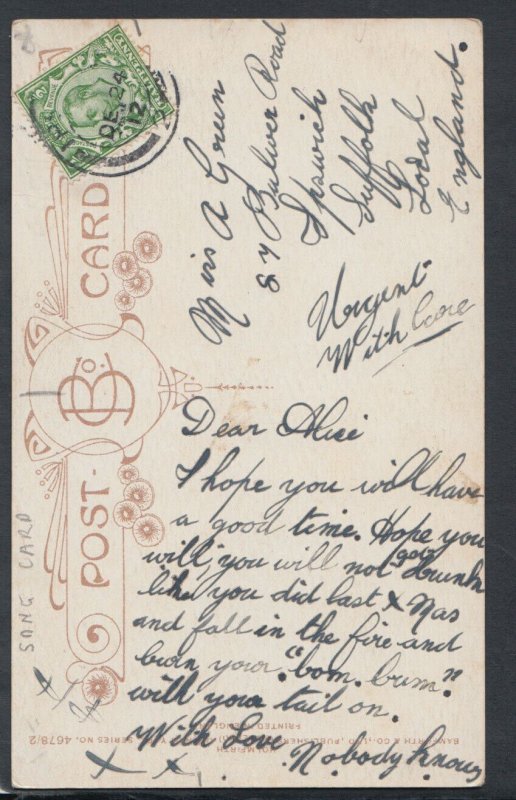 Miss A Green
87 Bulwer Road
Ipswich
Suffolk
Local
England.
Urgent
With Care
Dear Alice
I hope you will have
a good time. Hope you
will, you will not get drunk
like you did last X Mas
and fall in the fire and
burn your "bom. bum."
will you tail on.
With Love. Nobody Knows
X X
POST CARD
B & Co.
SONG CARD
HOLMFIRTH
BAMFORTH & CO., LTD., PUBLISHERS
SERIES NO. 4678/2
PRINTED IN ENGLAND
DE 24
12